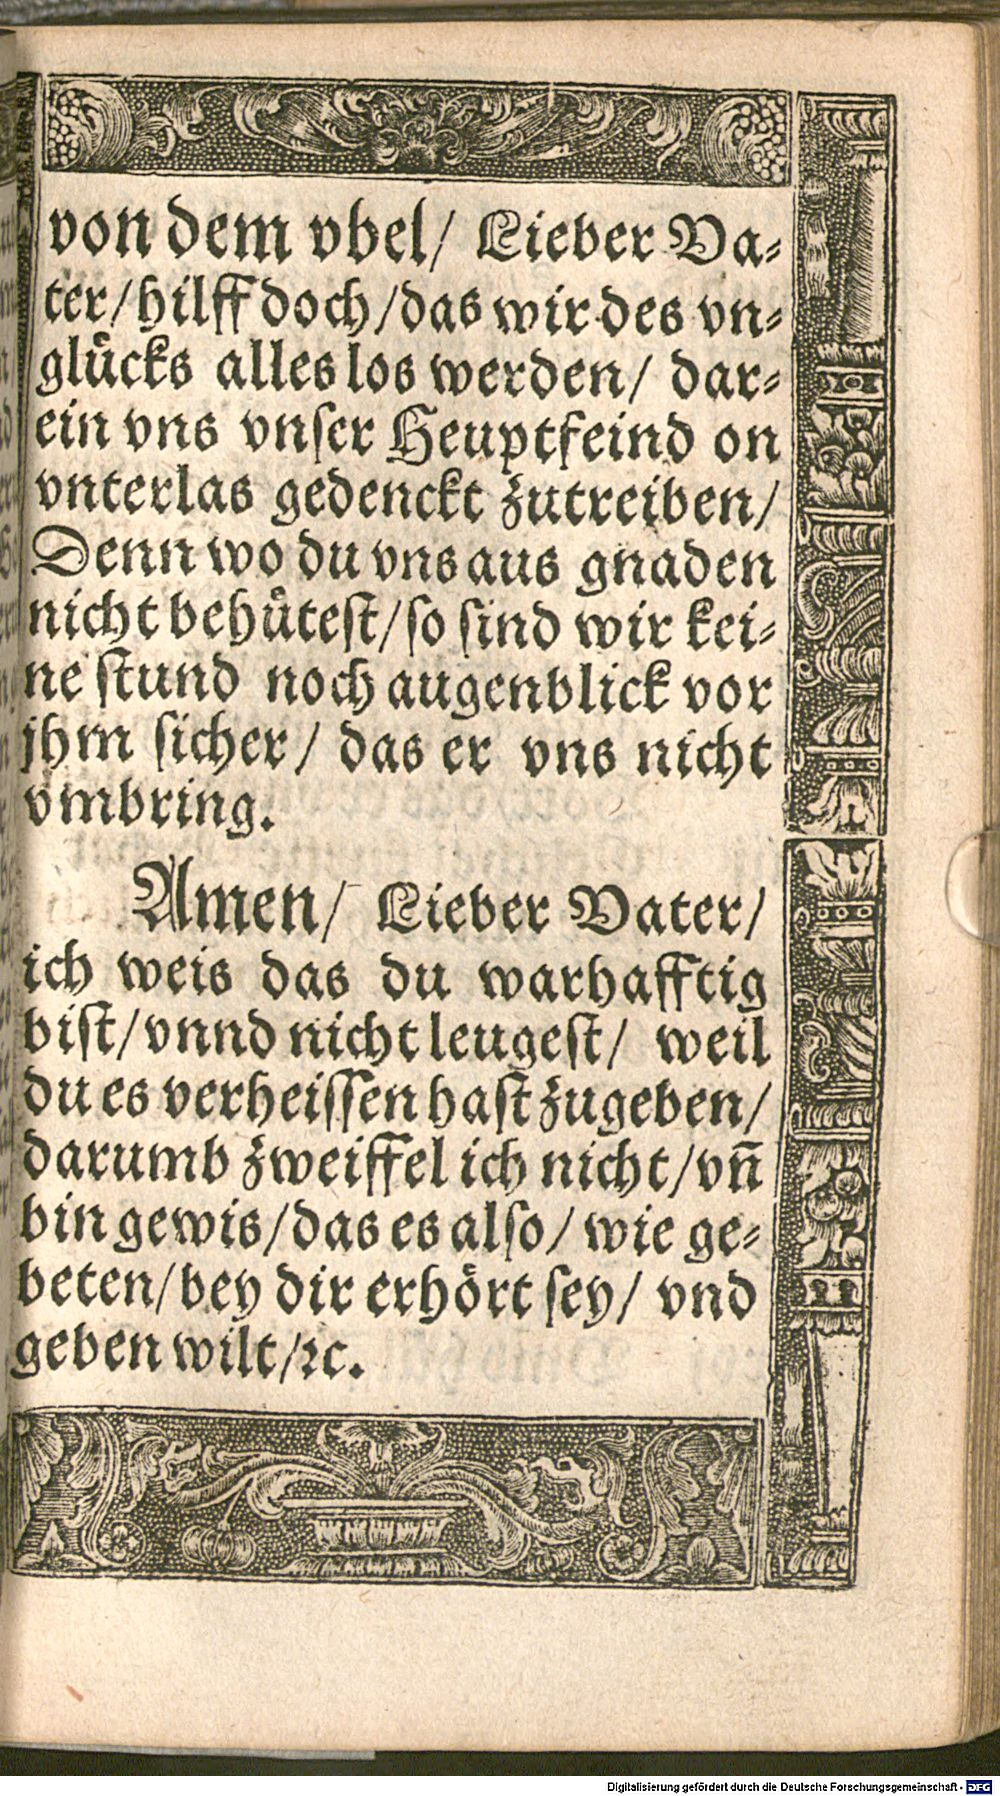 von dem vbel/ Lieber Va⸗
ter/hilff doch/das wir des vn⸗
glücks alles los werden/ dar⸗
ein vns vnser Heuptfeind on
vnterlas gedenckt zutreiben/
Denn wo du vns aus gnaden
nicht behütest/so sind wir kei⸗
ne stund noch augenblick vor
jhm sicher/ das er vns nicht
vmbring.
Amen/ Lieber Vater/
ich weis das du warhafftig
bist/vnnd nicht leugest/ weil
du es verheissen hast zugeben/
darumb zweiffel ich nicht/vn̄
bin gewis/das es also/ wie ge⸗
beten/bey dir erhört sey/ vnd
geben wilt/ꝛc.
Digitalisierung gefördert durch die Deutsche Forschungsgemeinschaft - DFG